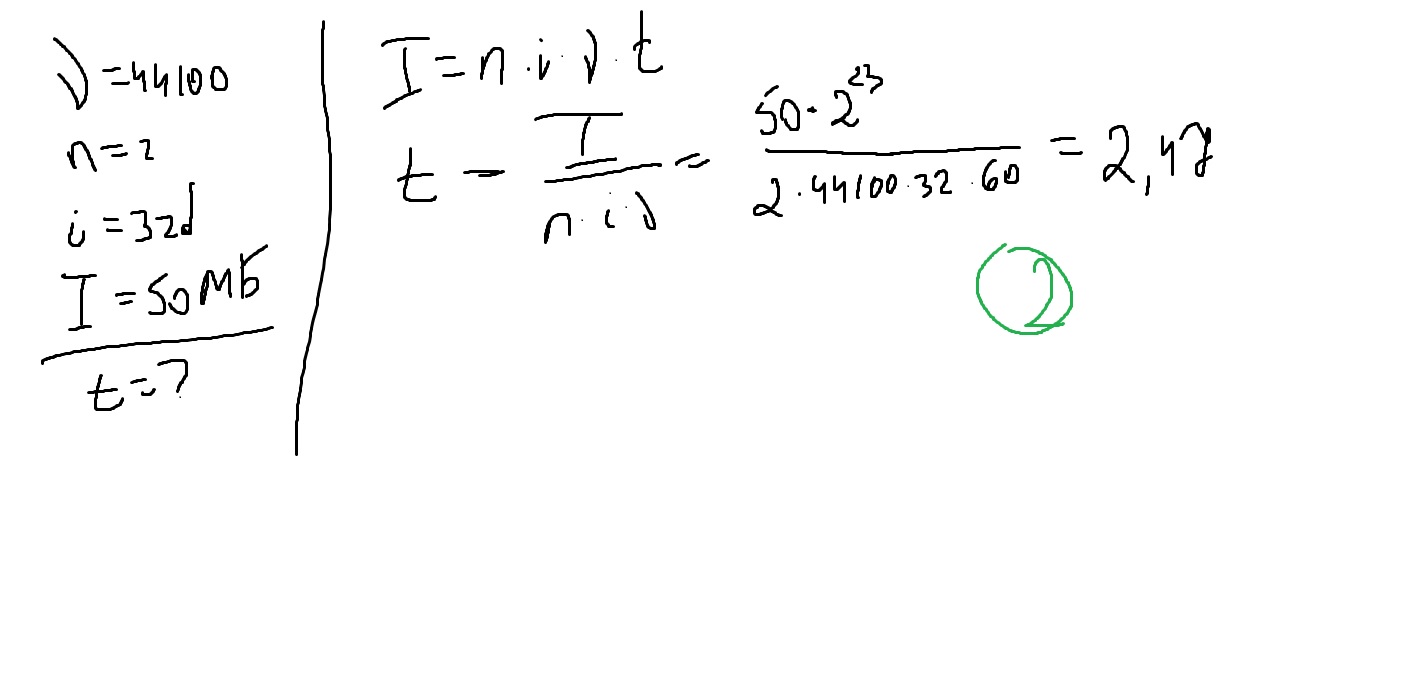 ν = 44100
n = 2
i = 32d
I = 50 Мб
t = ?
I = n · i · ν · t
t - I / n · i · ν = 50 · 2^23 / 2 · 44100 · 32 · 60 = 2,47
2